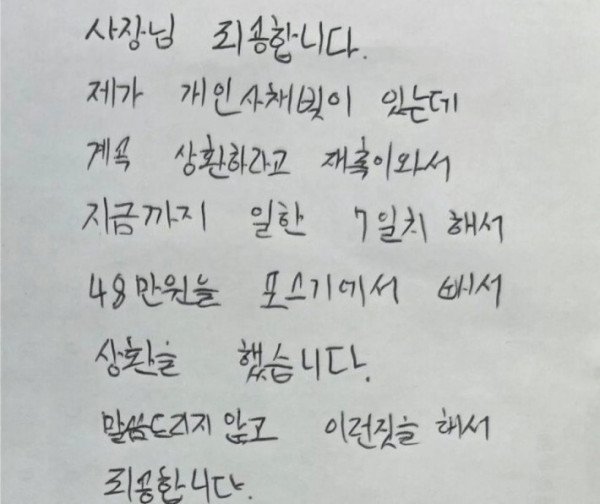 사장님 죄송합니다.
제가 개인사채빚이 있는데
계속 상환하라고 재촉이와서
지금까지 일한 7일치 해서
48만원을 포스기에서 빼서
상환을 했습니다.
말씀드리지 않고 이런짓을 해서
죄송합니다.